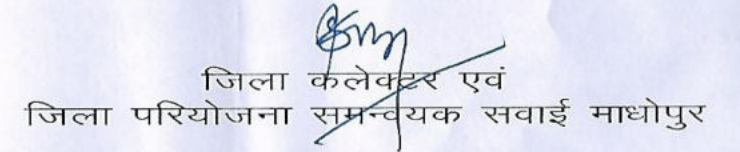 जिला कलेक्टर एवं
जिला परियोजना समन्वयक सवाई माधोपुर